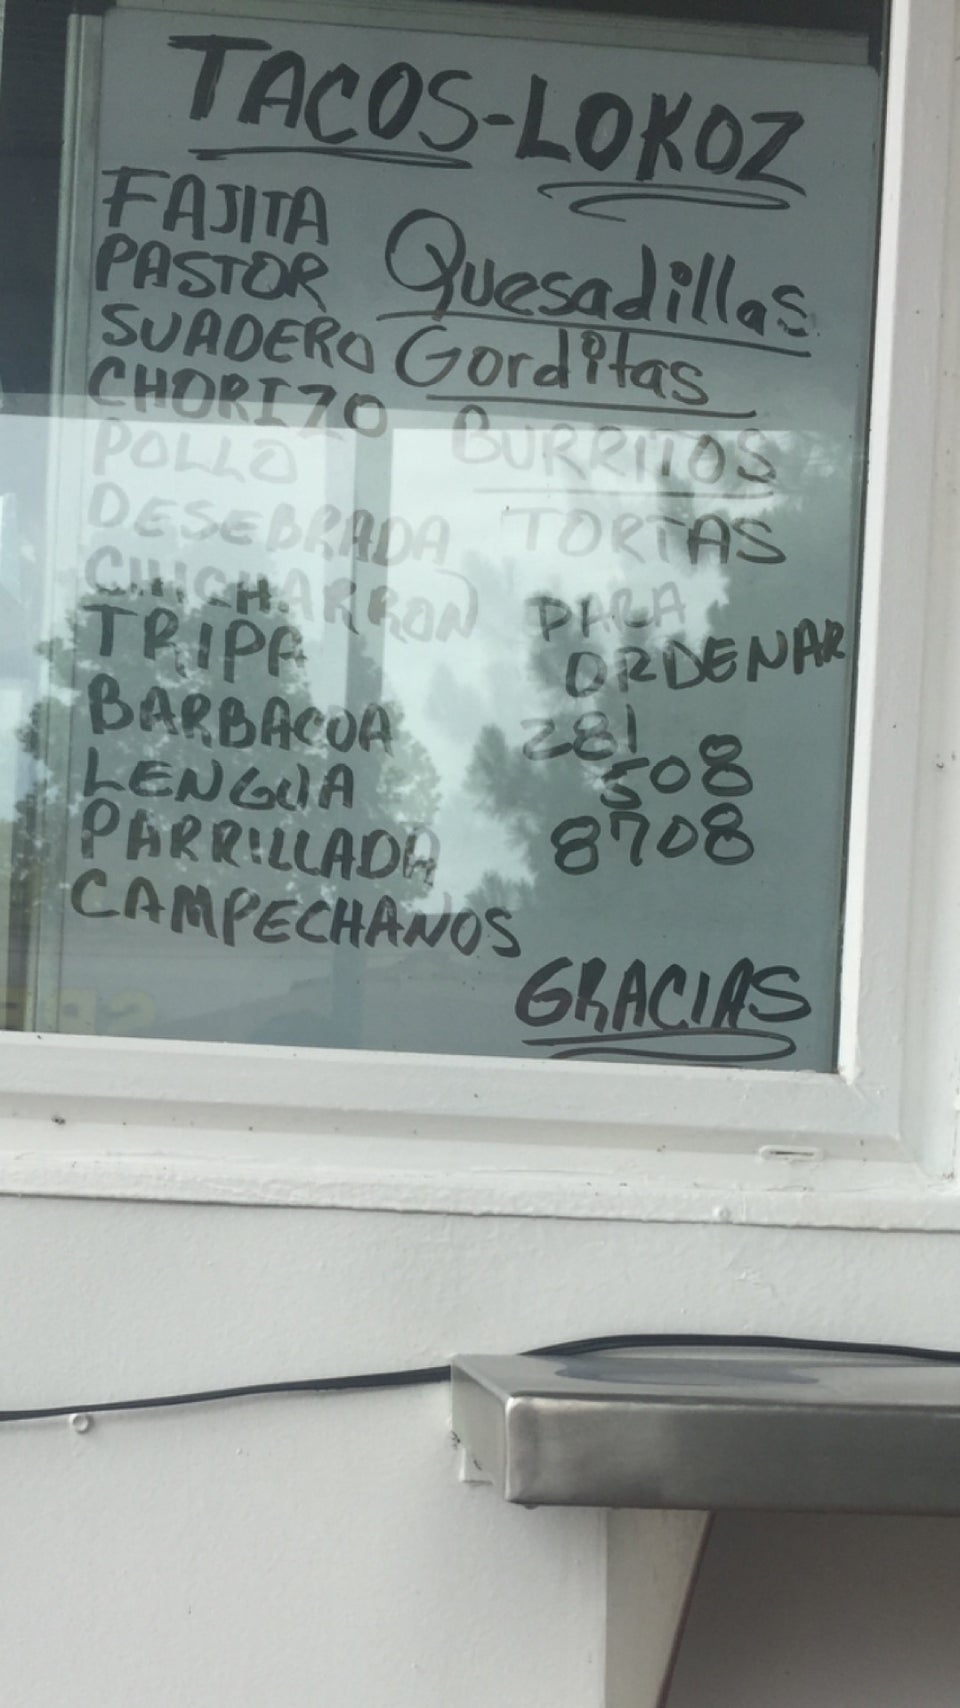 TACOS-LOKOZ
FAJITA
PASTOR
SUADERO
CHORIZO
POLLO
DESEBRADA
CHICHARRON
TRIPA
BARBACOA
LENGUA
PARRILLADA
CAMPECHANOS
Quesadillas
Gorditas
BURRITOS
TORTAS
PARA
ORDENAR
281
508
8708
GRACIAS